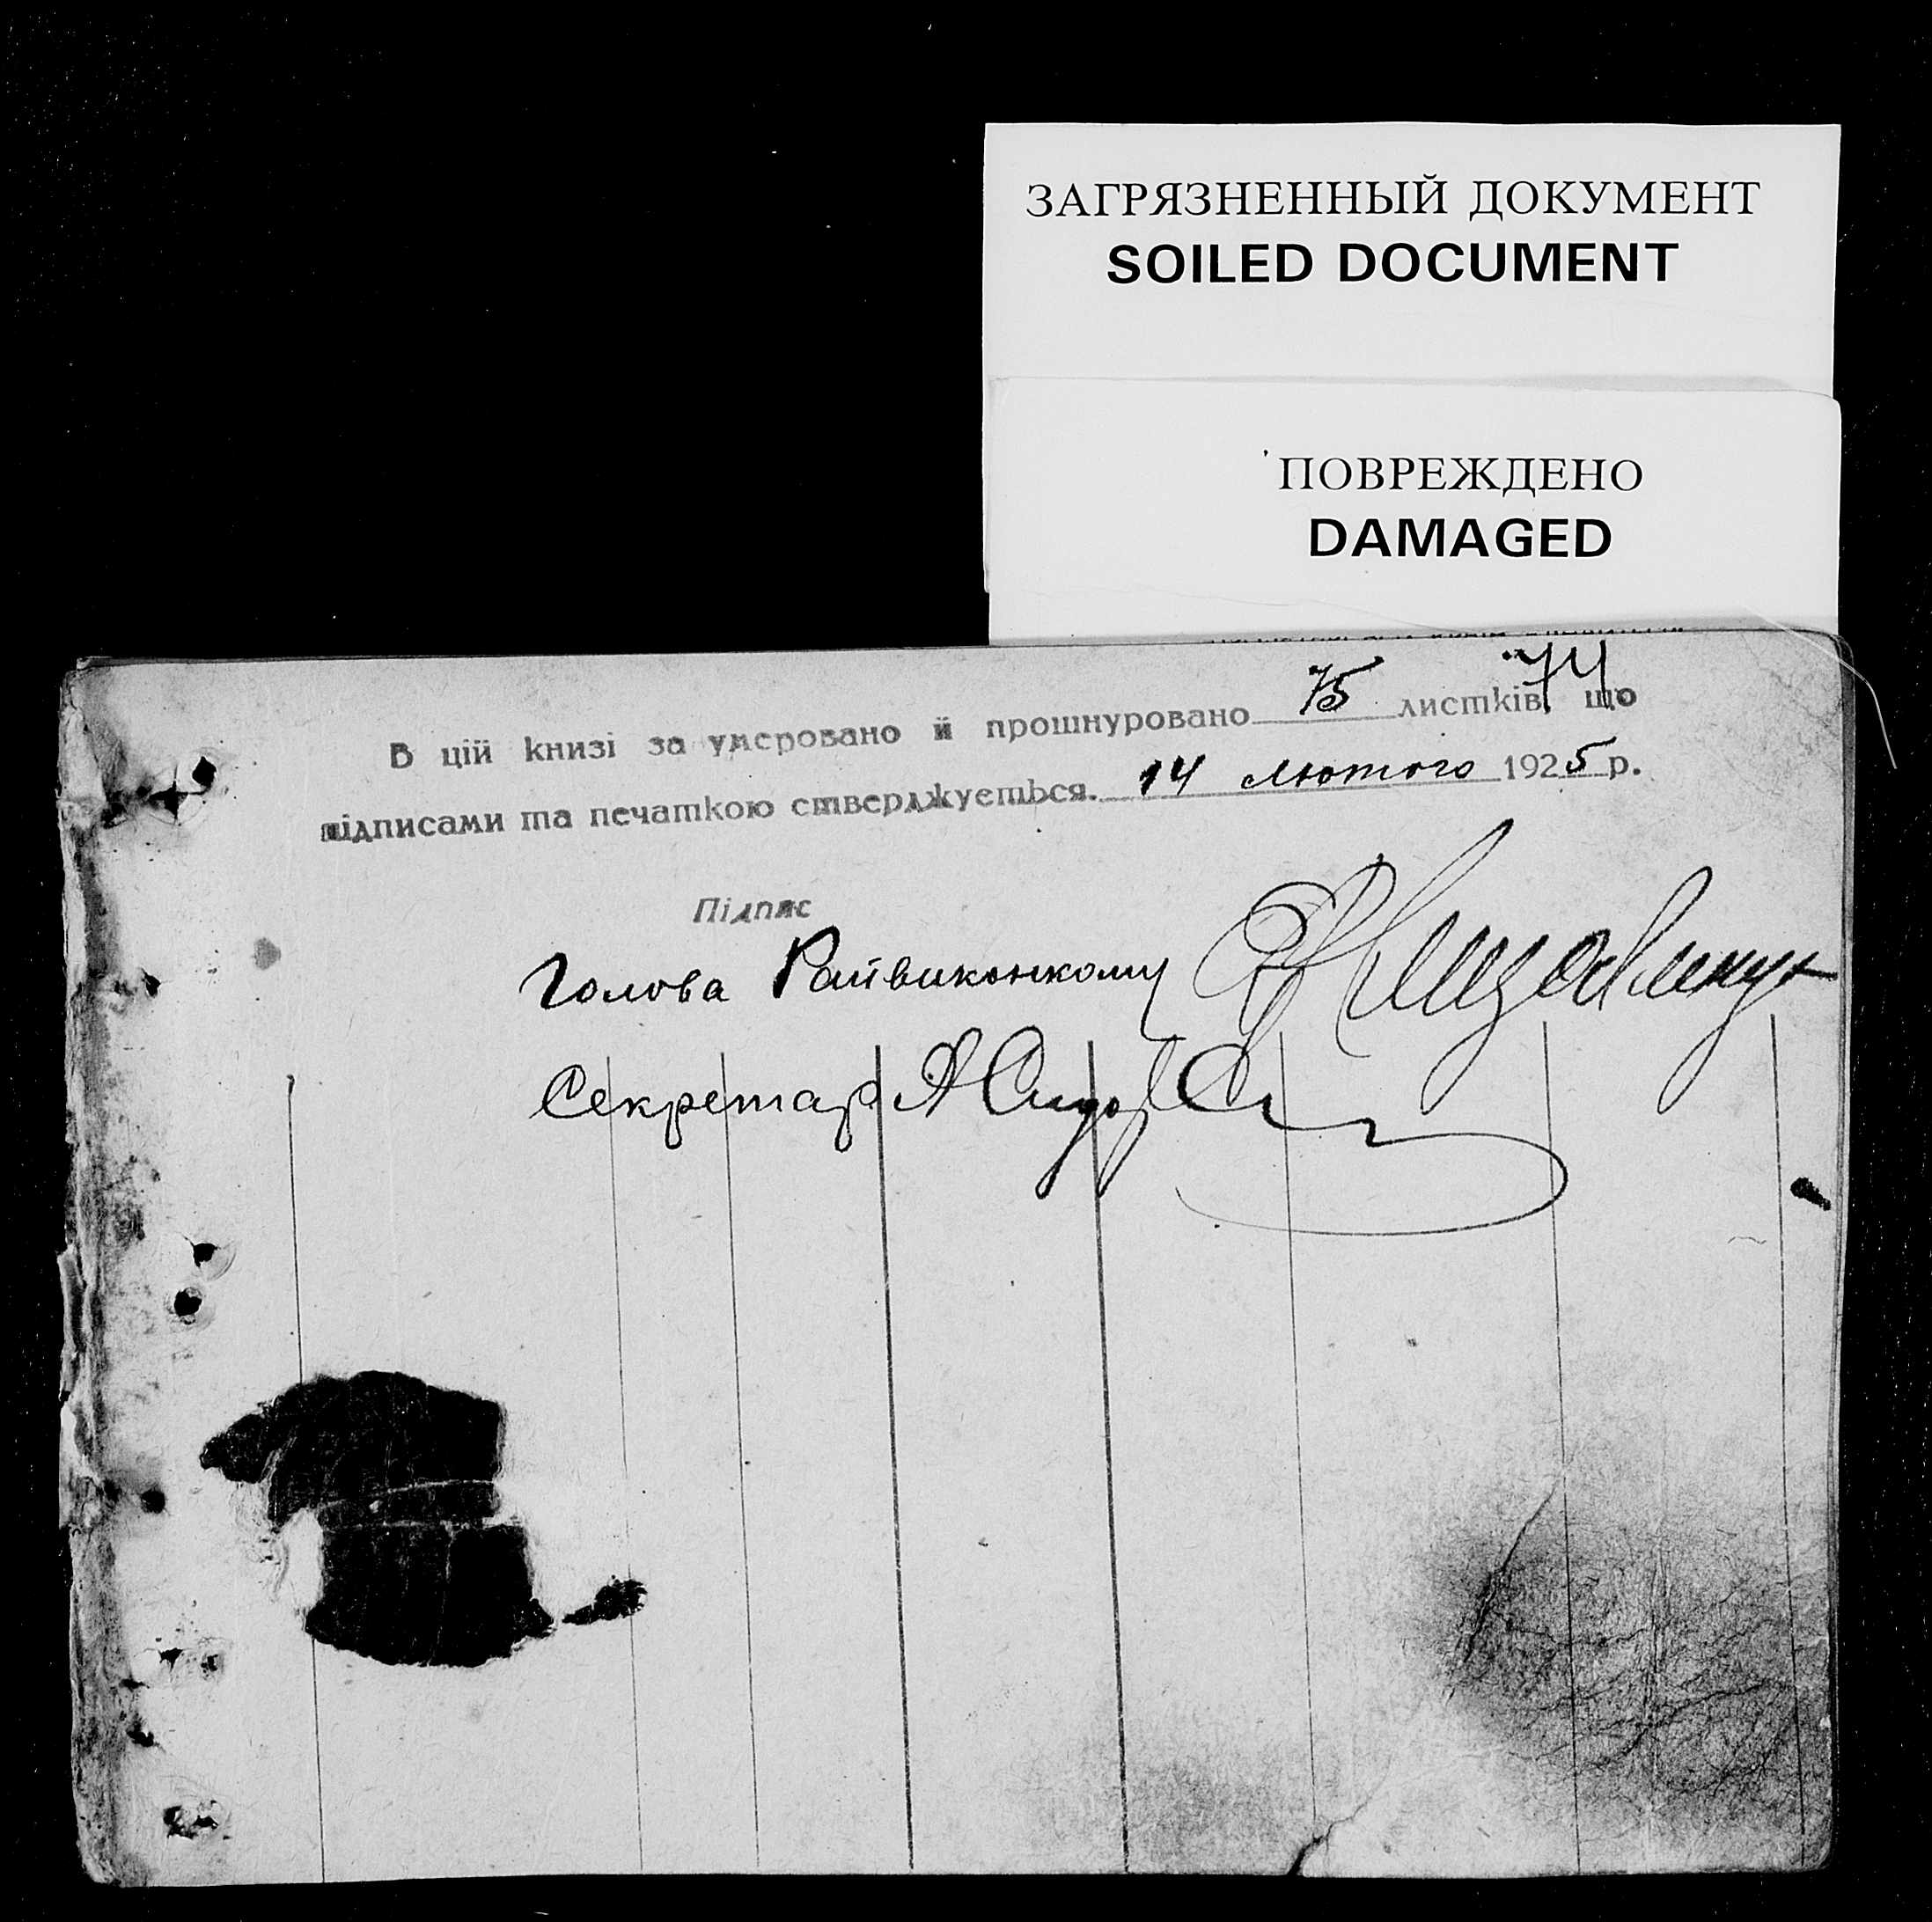 ЗАГРЯЗНЕННЫЙ ДОКУМЕНТ
SOILED DOCUMENT
ПОВРЕЖДЕНО
DAMAGED
74
В цій книзі за умеровано й прошнуровано 75 листків, що
підписами та печаткою стверджується. 14 лютого 1925 р.
Підпис
Голова Райвиконкому
Секретар